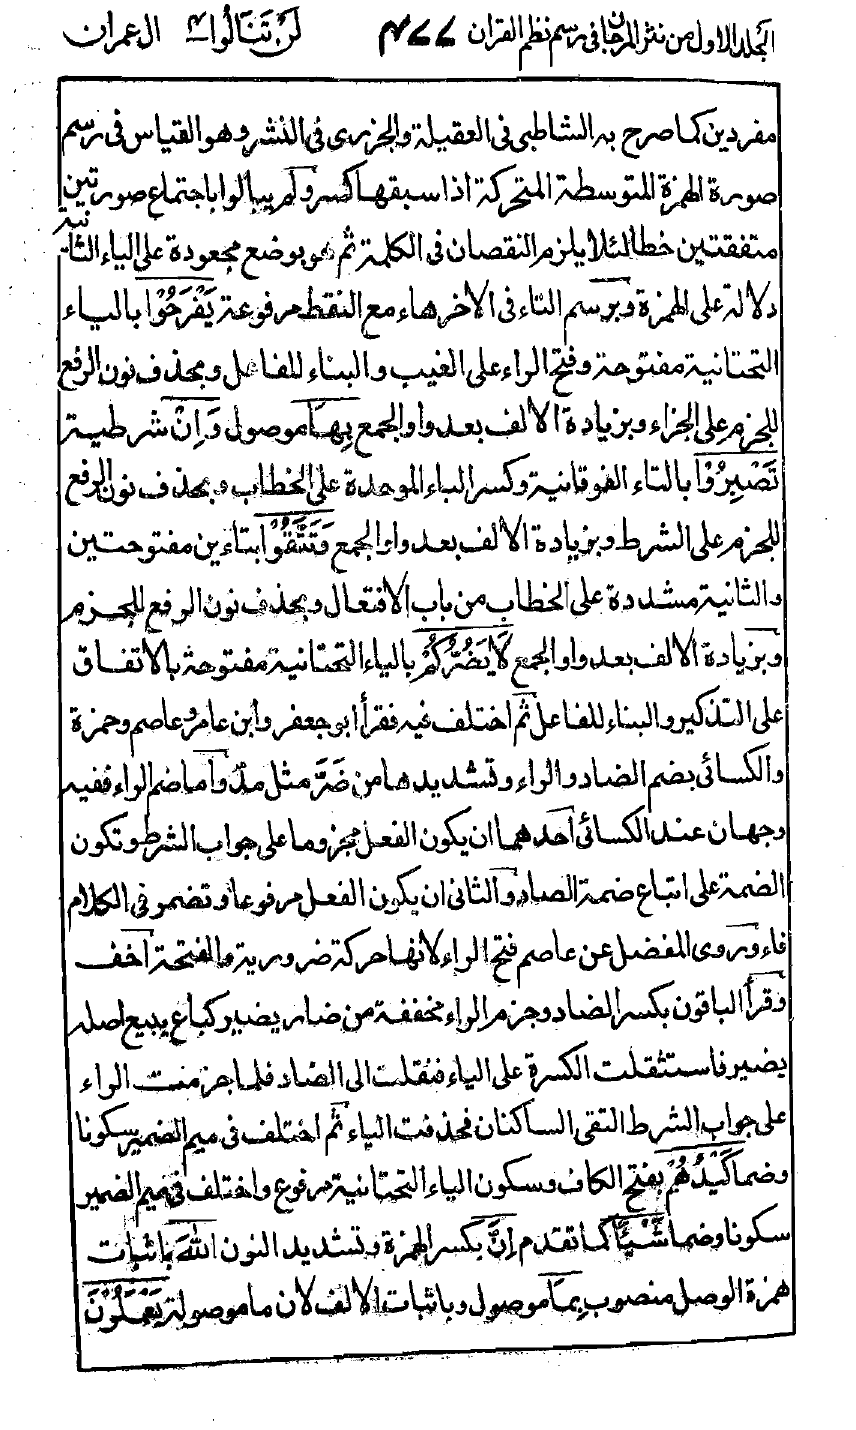 المجلد الاول من نثر المرجان فى رسم نظم القران ٤٧٧ لَنْ تَنَالُوا ٤ ال عمران
مفردين كما صرح به الشاطبى فى العقيلة والجزرى فى النشر وهو القياس فى رسم
صورة الهمزة المتوسطة المتحركة اذا سبقها كسر ولم يبالوا باجتماع صورتين
متفقتين خطا لئلا يلزم النقصان فى الكلمة ثم هو بوضع مجعودة على الياء الثانية
دلالة على الهمزة وبرسم التاء فى الاخر هاء مع النقط مرفوعة يَفْرَحُوْا بالياء
التحتانية مفتوحة وفتح الراء على الغيب والبناء للفاعل وبحذف نون الرفع
للجزم على الجزاء وبزيادة الالف بعد واو الجمع بِهَا موصول وَاِنْ شرطية
تَصْبِرُوْا بالتاء الفوقانية وكسر الباء الموحدة على الخطاب وبحذف نون الرفع
للجزم على الشرط وبزيادة الالف بعد واو الجمع وَتَتَّقُوْا بتاءين مفتوحتين
والثانية مشددة على الخطاب من باب الافتعال وبحذف نون الرفع للجزم
وبزيادة الالف بعد واو الجمع لَا يَضُرُّكُمْ بالياء التحتانية مفتوحة بالاتفاق
على التذكير والبناء للفاعل ثم اختلف فيه فقرأ ابو جعفر وابن عامر وعاصم وحمزة
والكسائى بضم الضاد والراء وتشديدها من ضَرَّ مثل مدّ واما ضم الراء ففيه
وجهان عند الكسائى احدهما ان يكون الفعل مجزوما على جواب الشرط وتكون
الضمة على اتباع ضمة الضاد والثانى ان يكون الفعل مرفوعا وتضمر فى الكلام
فاء وروى المفضل عن عاصم فتح الراء لانها حركة ضرورية والفتحة اخف
وقرأ الباقون بكسر الضاد وجزم الراء مخففة من ضار يضير كباع يبيع اصله
يضير فاستثقلت الكسرة على الياء فنقلت الى الضاد فلما جزمت الراء
على جواب الشرط التقى الساكنان فحذفت الياء ثم اختلف فى ميم الضمير سكونا
وضما كَيْدُهُمْ بفتح الكاف وسكون الياء التحتانية مرفوع واختلف فى ميم الضمير
سكونا وضما شَيْئًا كما تقدم اِنَّ بكسر الهمزة وتشديد النون اللّٰهَ باثبات
همزة الوصل منصوب بِمَا موصول وباثبات الالف لان ما موصولة يَعْمَلُوْنَ